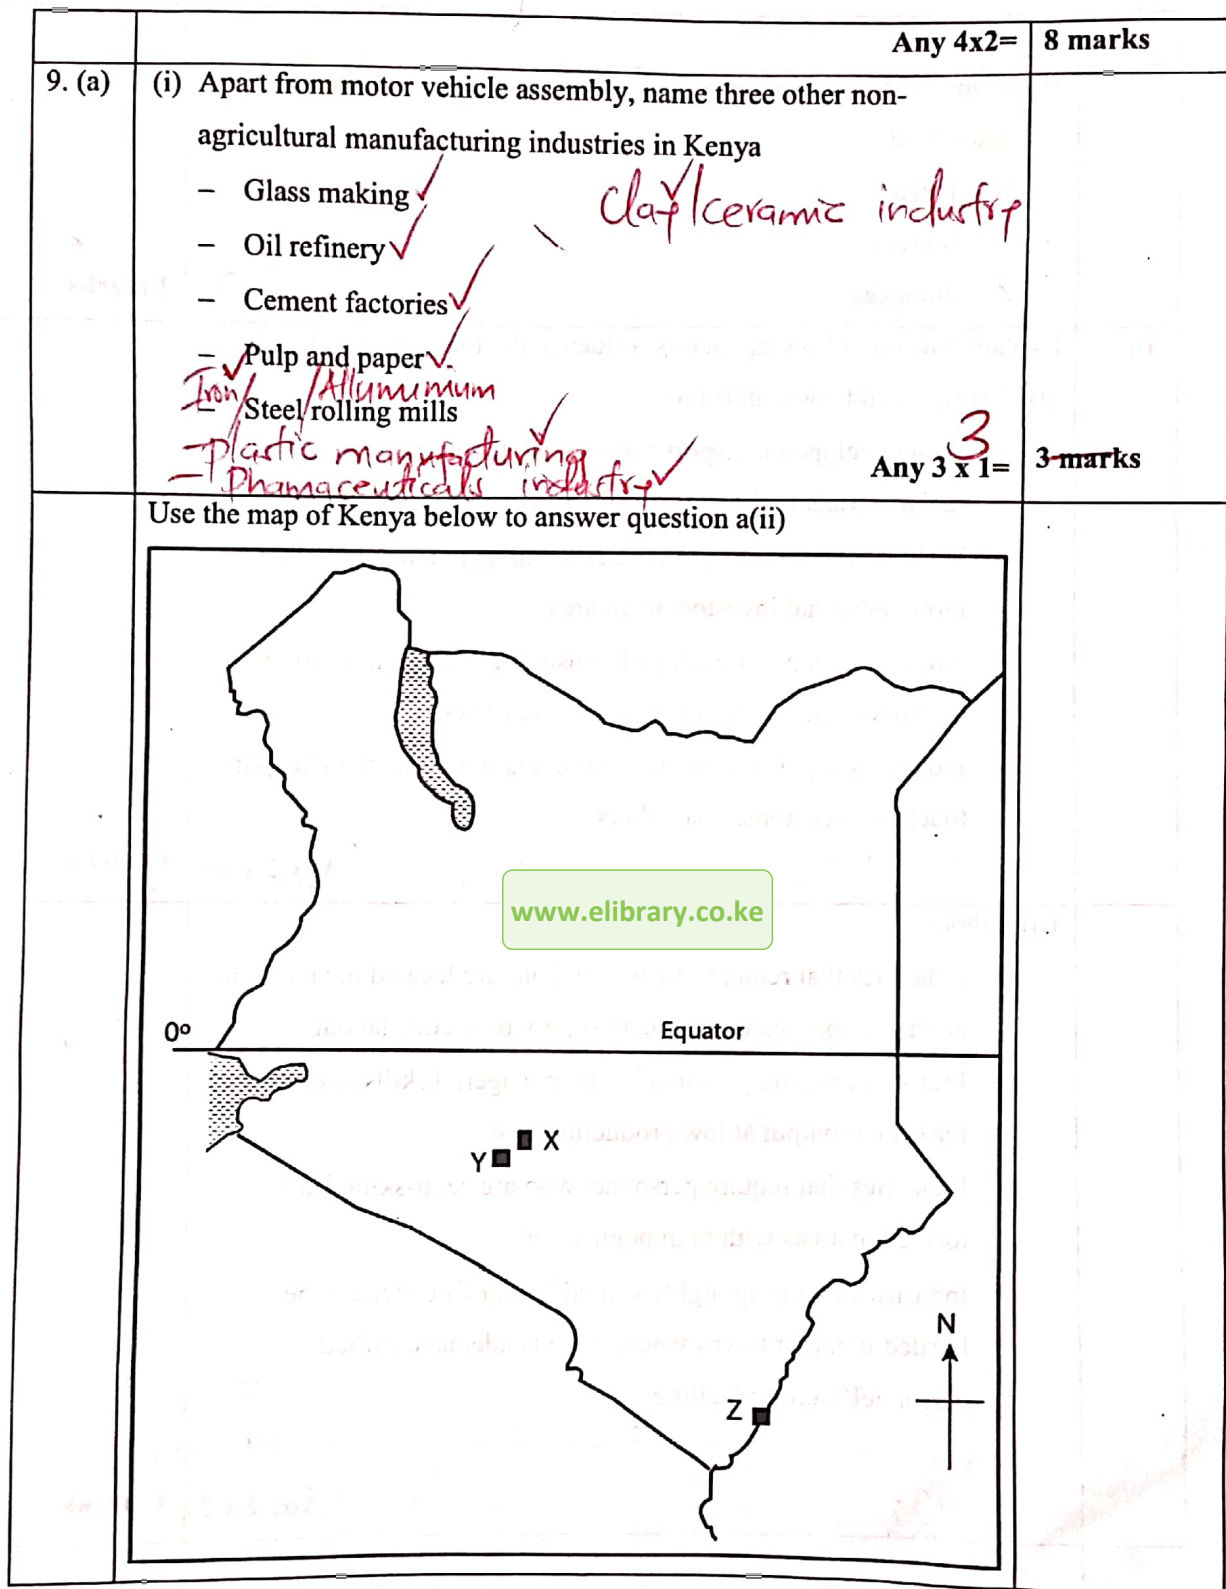 Any 4x2= 8 marks
9. (a) (i) Apart from motor vehicle assembly, name three other non-
agricultural manufacturing industries in Kenya
– Glass making
Clay/ceramic industry
– Oil refinery
– Cement factories
– Pulp and paper
Iron/ /Allumumum
– Steel rolling mills
– Plastic manufacturing
3
Any 3 x 1= 3 marks
– Phamaceuticals industry
Use the map of Kenya below to answer question a(ii)
www.elibrary.co.ke
0° Equator
X
Y
N
Z